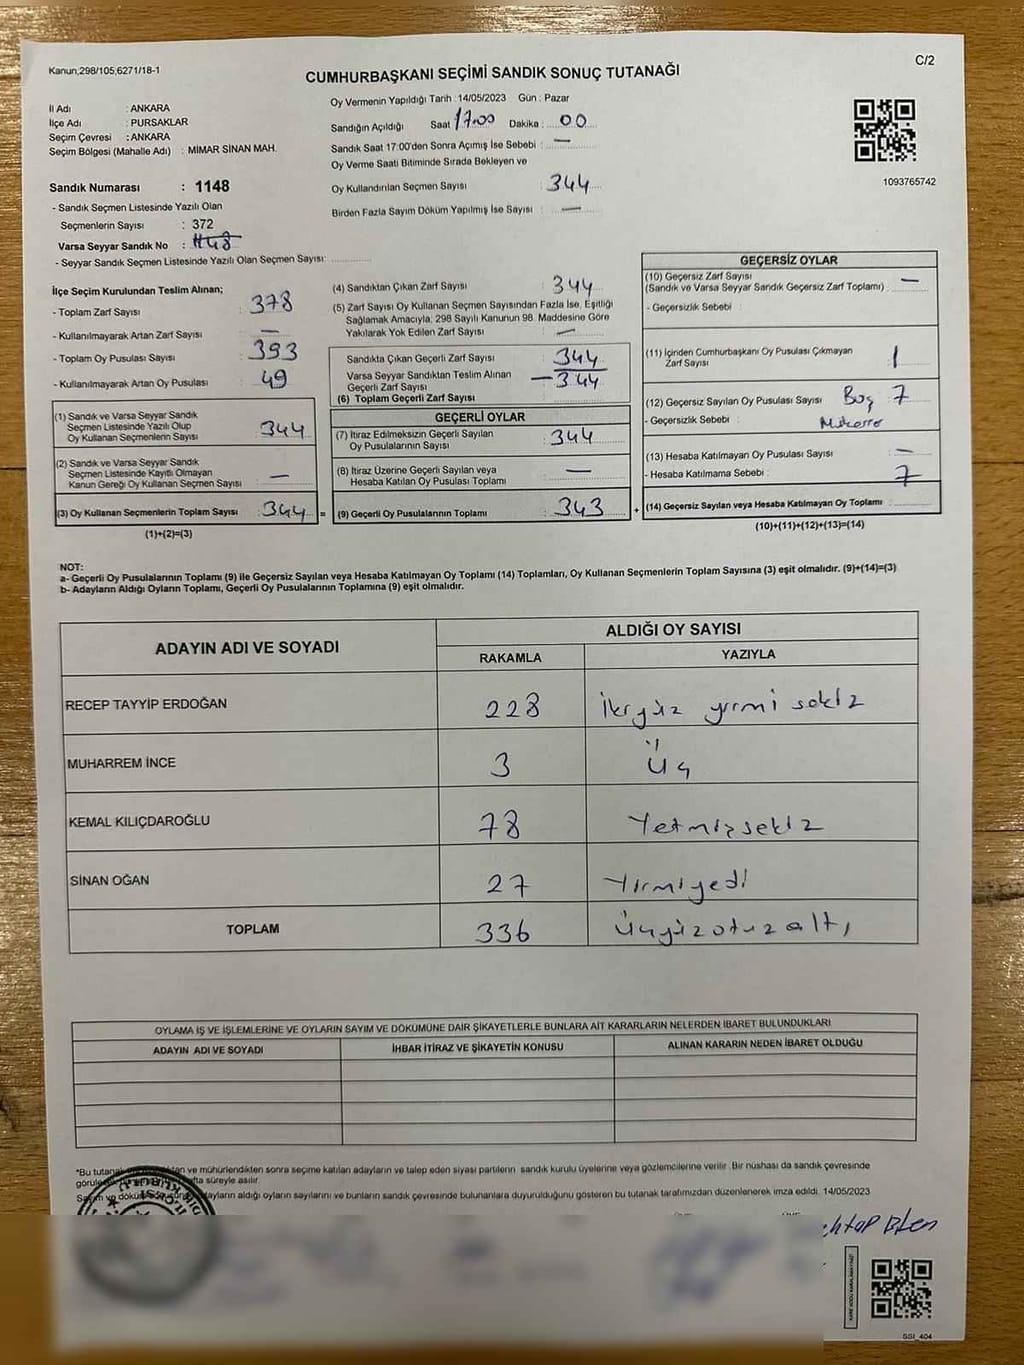 Kanun;298/105,6271/18-1
C/2
CUMHURBAŞKANI SEÇİMİ SANDIK SONUÇ TUTANAĞI
İl Adı : ANKARA
İlçe Adı : PURSAKLAR
Seçim Çevresi : ANKARA
Seçim Bölgesi (Mahalle Adı) : MİMAR SİNAN MAH.
Oy Vermenin Yapıldığı Tarih : 14/05/2023 Gün : Pazar
Sandığın Açıldığı Saat 17.00 Dakika : 00
Sandık Saat 17:00'den Sonra Açımış İse Sebebi : —
Oy Verme Saati Bitiminde Sırada Bekleyen ve
Oy Kullandırılan Seçmen Sayısı : 344
Birden Fazla Sayım Döküm Yapılmış İse Sayısı : —
1093765742
Sandık Numarası : 1148
- Sandık Seçmen Listesinde Yazılı Olan
Seçmenlerin Sayısı : 372
Varsa Seyyar Sandık No : 1148
- Seyyar Sandık Seçmen Listesinde Yazılı Olan Seçmen Sayısı:
İlçe Seçim Kurulundan Teslim Alınan;
- Toplam Zarf Sayısı : 378
- Kullanılmayarak Artan Zarf Sayısı : —
- Toplam Oy Pusulası Sayısı : 393
- Kullanılmayarak Artan Oy Pusulası : 49
(1) Sandık ve Varsa Seyyar Sandık
Seçmen Listesinde Yazılı Olup
Oy Kullanan Seçmenlerin Sayısı : 344
(2) Sandık ve Varsa Seyyar Sandık
Seçmen Listesinde Kayıtlı Olmayan
Kanun Gereği Oy Kullanan Seçmen Sayısı : —
(3) Oy Kullanan Seçmenlerin Toplam Sayısı : 344 =
(1)+(2)=(3)
(4) Sandıktan Çıkan Zarf Sayısı : 344
(5) Zarf Sayısı Oy Kullanan Seçmen Sayısından Fazla İse, Eşitliği
Sağlamak Amacıyla; 298 Sayılı Kanunun 98. Maddesine Göre
Yakılarak Yok Edilen Zarf Sayısı : —
Sandıkta Çıkan Geçerli Zarf Sayısı : 344
Varsa Seyyar Sandıktan Teslim Alınan
Geçerli Zarf Sayısı : —
(6) Toplam Geçerli Zarf Sayısı : 344
GEÇERLİ OYLAR
(7) İtiraz Edilmeksizin Geçerli Sayılan
Oy Pusulalarının Sayısı : 344
(8) İtiraz Üzerine Geçerli Sayılan veya
Hesaba Katılan Oy Pusulası Toplamı : —
(9) Geçerli Oy Pusulalarının Toplamı : 343 +
GEÇERSİZ OYLAR
(10) Geçersiz Zarf Sayısı
(Sandık ve Varsa Seyyar Sandık Geçersiz Zarf Toplamı) : —
- Geçersizlik Sebebi :
(11) İçinden Cumhurbaşkanı Oy Pusulası Çıkmayan
Zarf Sayısı : 1
(12) Geçersiz Sayılan Oy Pusulası Sayısı : Boş 7
- Geçersizlik Sebebi :
(13) Hesaba Katılmayan Oy Pusulası Sayısı : —
- Hesaba Katılmama Sebebi : 7
(14) Geçersiz Sayılan veya Hesaba Katılmayan Oy Toplamı :
(10)+(11)+(12)+(13)=(14)
NOT:
a- Geçerli Oy Pusulalarının Toplamı (9) ile Geçersiz Sayılan veya Hesaba Katılmayan Oy Toplamı (14) Toplamları, Oy Kullanan Seçmenlerin Toplam Sayısına (3) eşit olmalıdır. (9)+(14)=(3)
b- Adayların Aldığı Oyların Toplamı, Geçerli Oy Pusulalarının Toplamına (9) eşit olmalıdır.
ADAYIN ADI VE SOYADI
ALDIĞI OY SAYISI
RAKAMLA YAZIYLA
RECEP TAYYİP ERDOĞAN 228 İkiyüz yirmi sekiz
MUHARREM İNCE 3 Üç
KEMAL KILIÇDAROĞLU 78 Yetmişsekiz
SİNAN OĞAN 27 Yirmiyedi
TOPLAM 336 Üçyüzotuzaltı
OYLAMA İŞ VE İŞLEMLERİNE VE OYLARIN SAYIM VE DÖKÜMÜNE DAİR ŞİKAYETLERLE BUNLARA AİT KARARLARIN NELERDEN İBARET BULUNDUKLARI
ADAYIN ADI VE SOYADI İHBAR İTİRAZ VE ŞİKAYETİN KONUSU ALINAN KARARIN NEDEN İBARET OLDUĞU
*Bu tutanak ve mühürlendikten sonra seçime katılan adayların ve talep eden siyasi partilerin sandık kurulu üyelerine veya gözlemcilerine verilir. Bir nüshası da sandık çevresinde
süreyle asılır.
Sayım ve döküm adayların aldığı oyların sayılarını ve bunların sandık çevresinde bulunanlara duyurulduğunu gösteren bu tutanak tarafımızdan düzenlenerek imza edildi. 14/05/2023
SSI_404